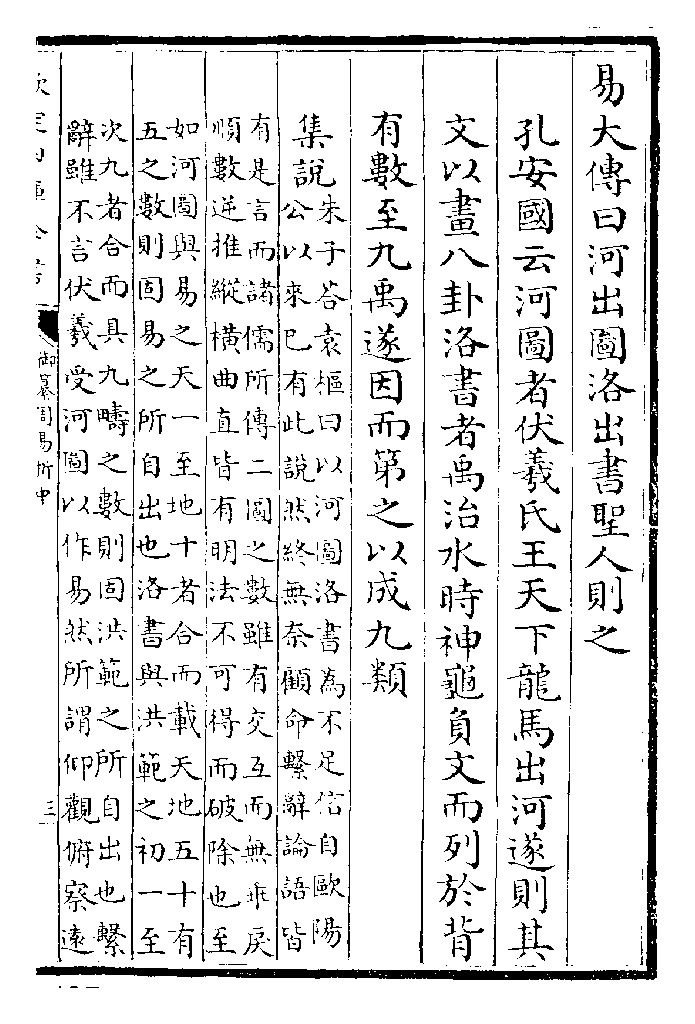 易大傳曰河出圖洛出書聖人則之
孔安國云河圖者伏羲氏王天下龍馬出河遂則其
文以畫八卦洛書者禹治水時神龜負文而列於背
有數至九禹遂因而第之以成九類
集說朱子答袁樞曰以河圖洛書為不足信自歐陽
公以來已有此說然終無奈顧命繫辭論語皆
有是言而諸儒所傳二圖之數雖有交互而無乖戾
順數逆推縱橫曲直皆有明法不可得而破除也至
如河圖與易之天一至地十者合而載天地五十有
五之數則固易之所自出也洛書與洪範之初一至
次九者合而具九疇之數則固洪範之所自出也繫
辭雖不言伏羲受河圖以作易然所謂仰觀俯察遠
御纂周易折中
三